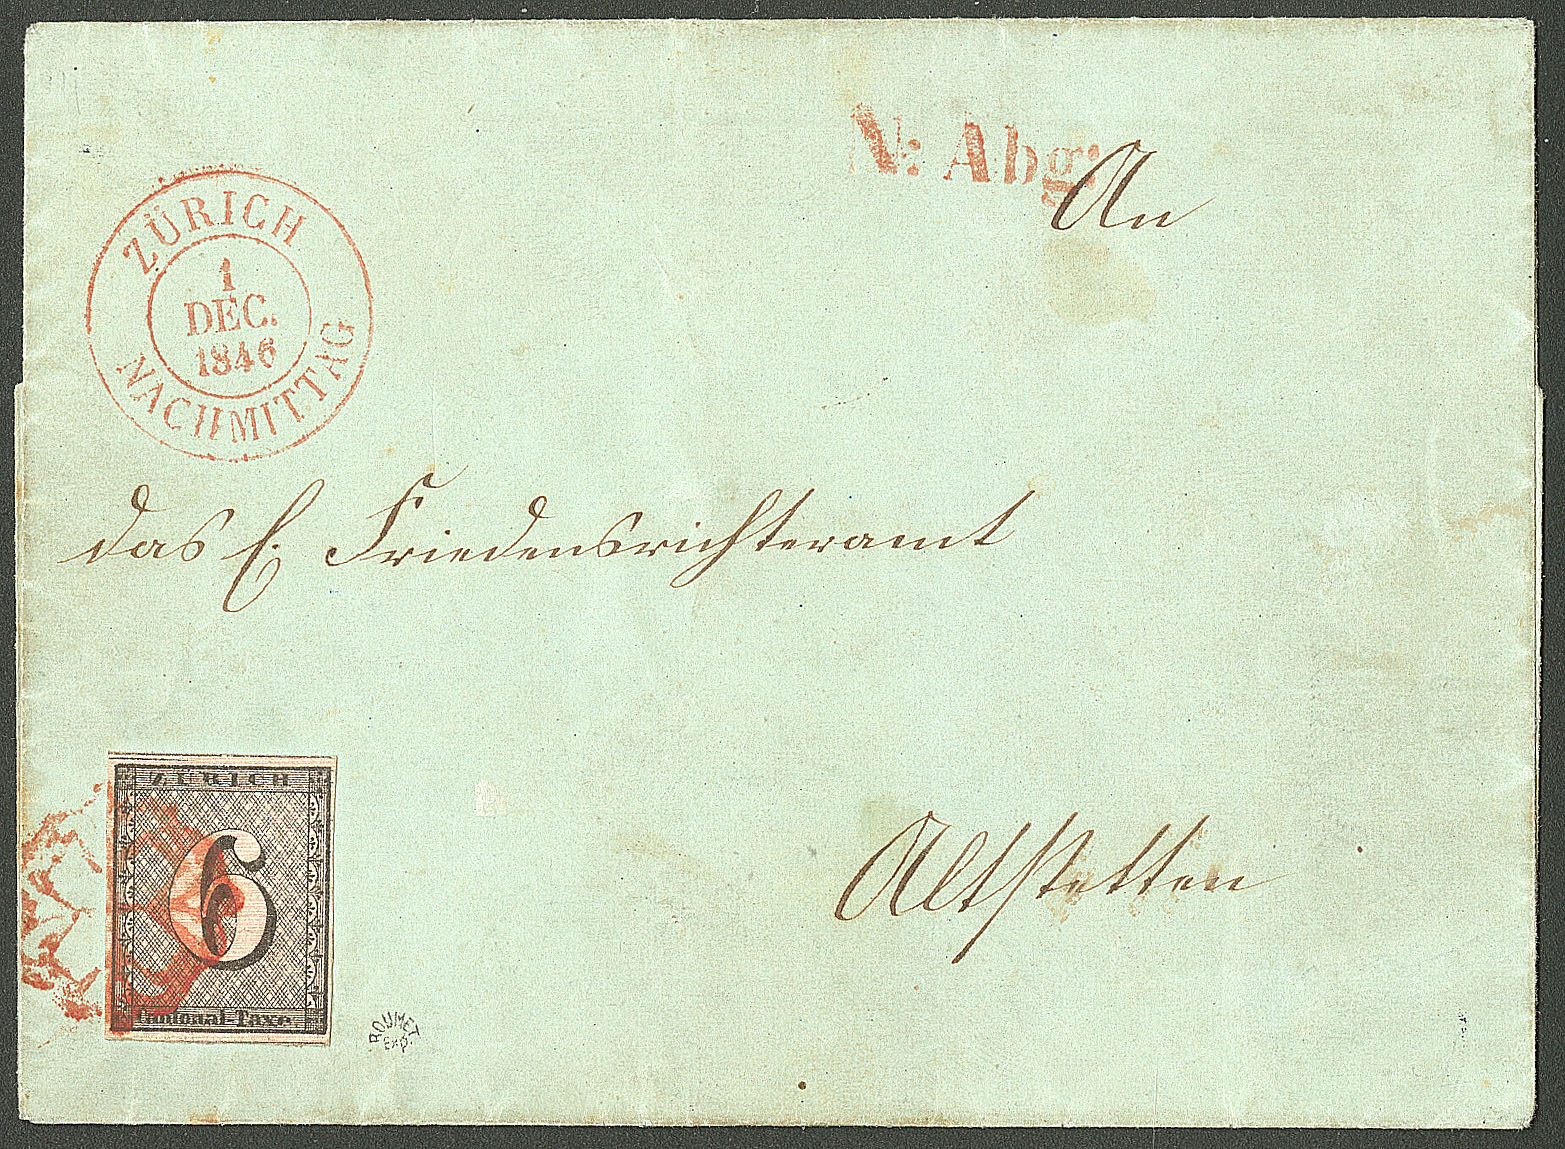 N: Abg:
An
ZÜRICH
1
DEC.
1846
NACHMITTAG
das E. Friedensrichteramt
Altstetten
ZÜRICH
6
Cantonal-Taxe.
ROUMET
Exp.